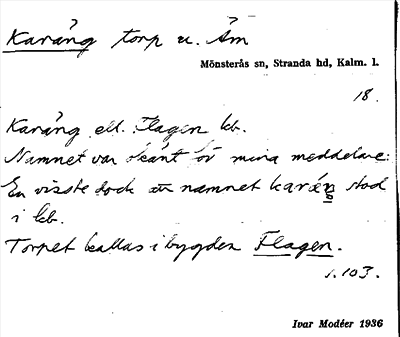 Karång torp u. Åm
Mönsterås sn, Stranda hd, Kalm. l.
18.
Karång ell. Flagen kb.
Namnet var okänt för mina meddelare.
En visste dock att namnet karång stod
i kb.
Torpet kallas i bygden Flagen.
1.103.
Ivar Modéer 1936